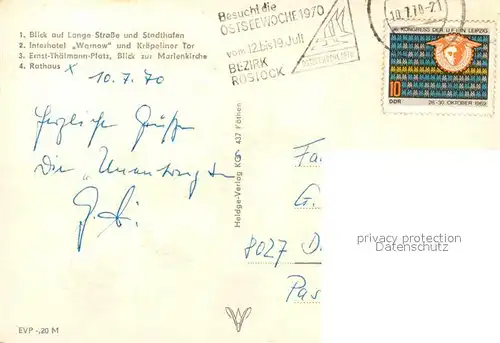 1. Blick auf Lange Straße und Stadthafen
2. Interhotel „Warnow" und Kröpeliner Tor
3. Ernst-Thälmann-Platz, Blick zur Marienkirche
4. Rathaus x
10.7.70
Herzliche Grüße
Die
EVP -,20 M
Heldge-Verlag KG 437 Köthen
Besucht die
OSTSEEWOCHE 1970
vom 12. bis 19. Juli
BEZIRK
ROSTOCK
KONGRESS DER IN LEIPZIG
10
DDR
26.-30. OKTOBER 1969
G.
8027 D
Pas
privacy protection
Datenschutz